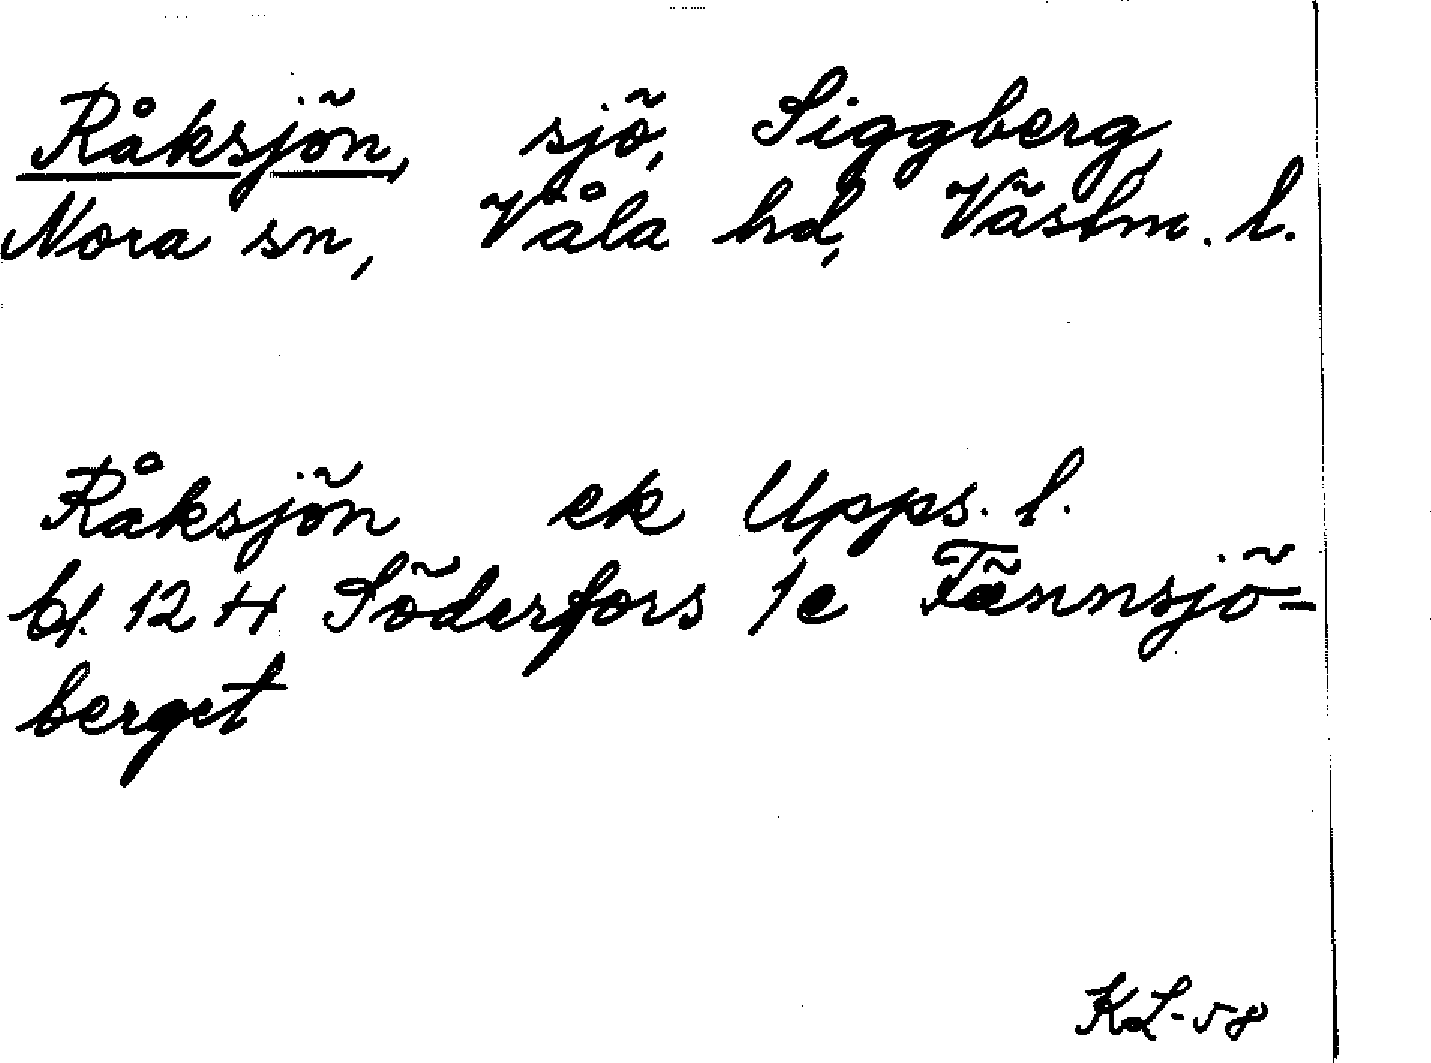 Råksjön, sjö, Siggberg,
Nora sn, Våla hd, Västm. l.
Råksjön ek Upps. l.
bl. 12 H Söderfors 1e Tännsjö-
berget
KL-58